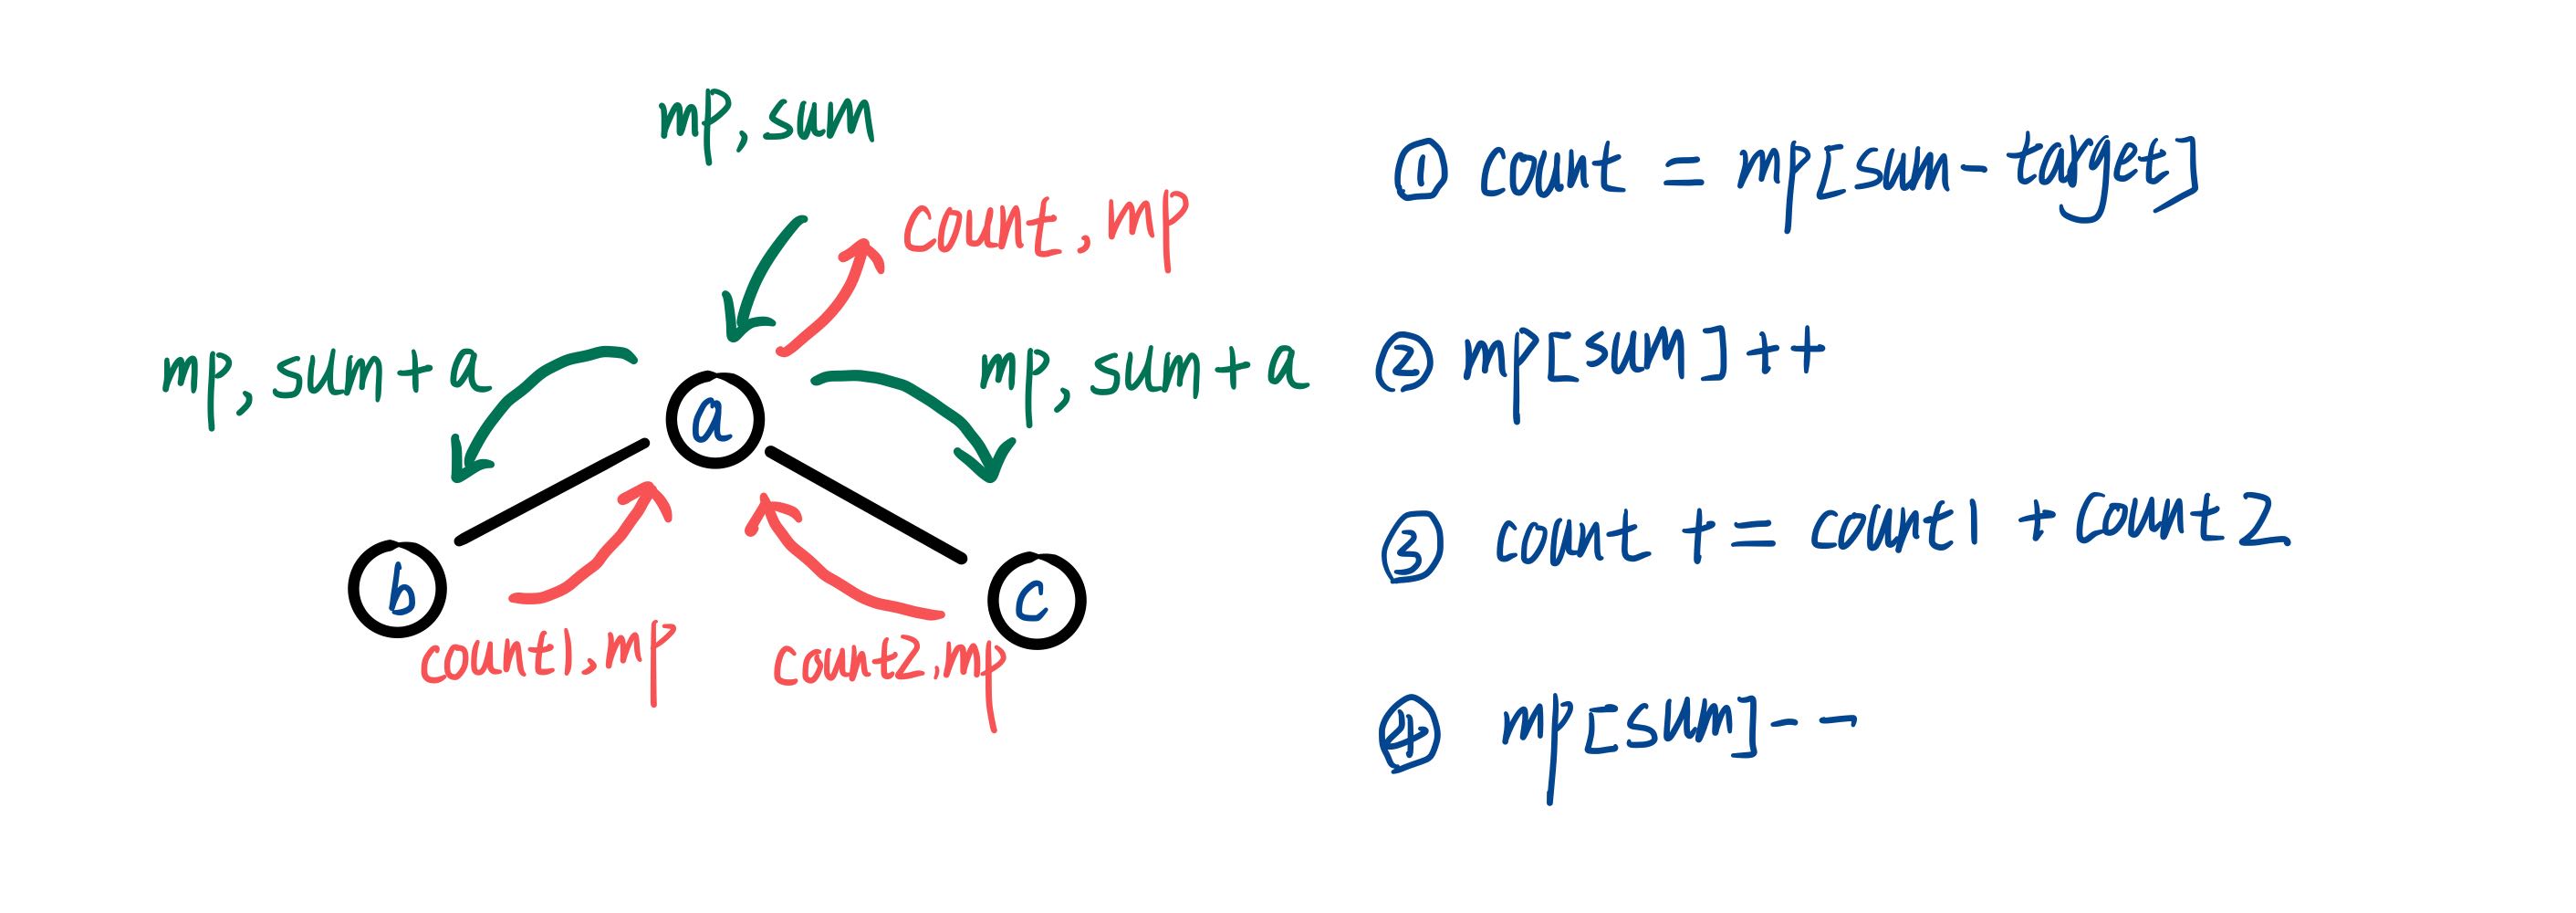 mp, sum
count, mp
mp, sum + a
mp, sum + a
a
b
c
count1, mp
count2, mp
① count = mp[sum - target]
② mp[sum]++
③ count += count1 + count2
④ mp[sum]--